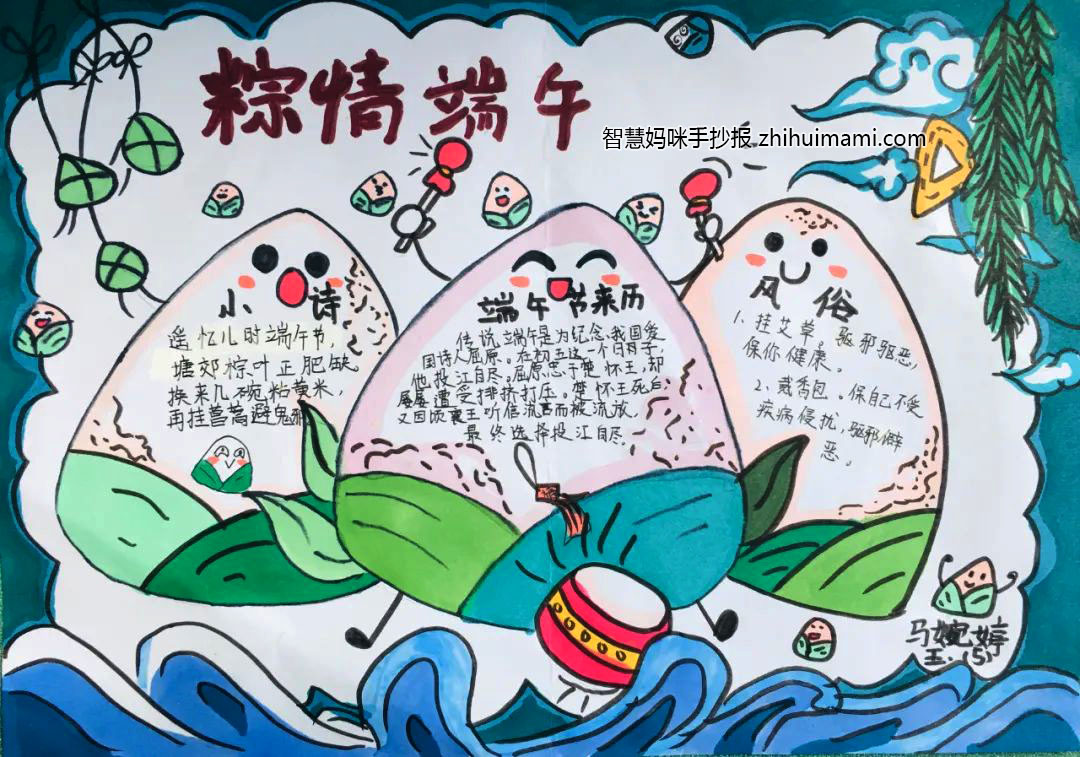 粽情端午
智慧妈咪手抄报 zhihuimami.com
小诗
遥忆儿时端午节,
塘郊棕叶正肥缺。
换来几碗粘黄米,
再挂菖蒿避鬼邪
端午节来历
传说端午是为纪念我国爱
国诗人屈原。在初五这一个日母子,
他投江自尽。屈原忠于楚怀王,却
屡屡遭受排挤打压。楚怀王死后
又因顷襄王听信流言而被流放,
最终选择投江自尽.
风俗
1、挂艾草。驱邪驱恶,
保你健康。
2、戴香包。保自己不受
疾病侵扰,驱邪僻
恶。
马婉婷
五.(5)